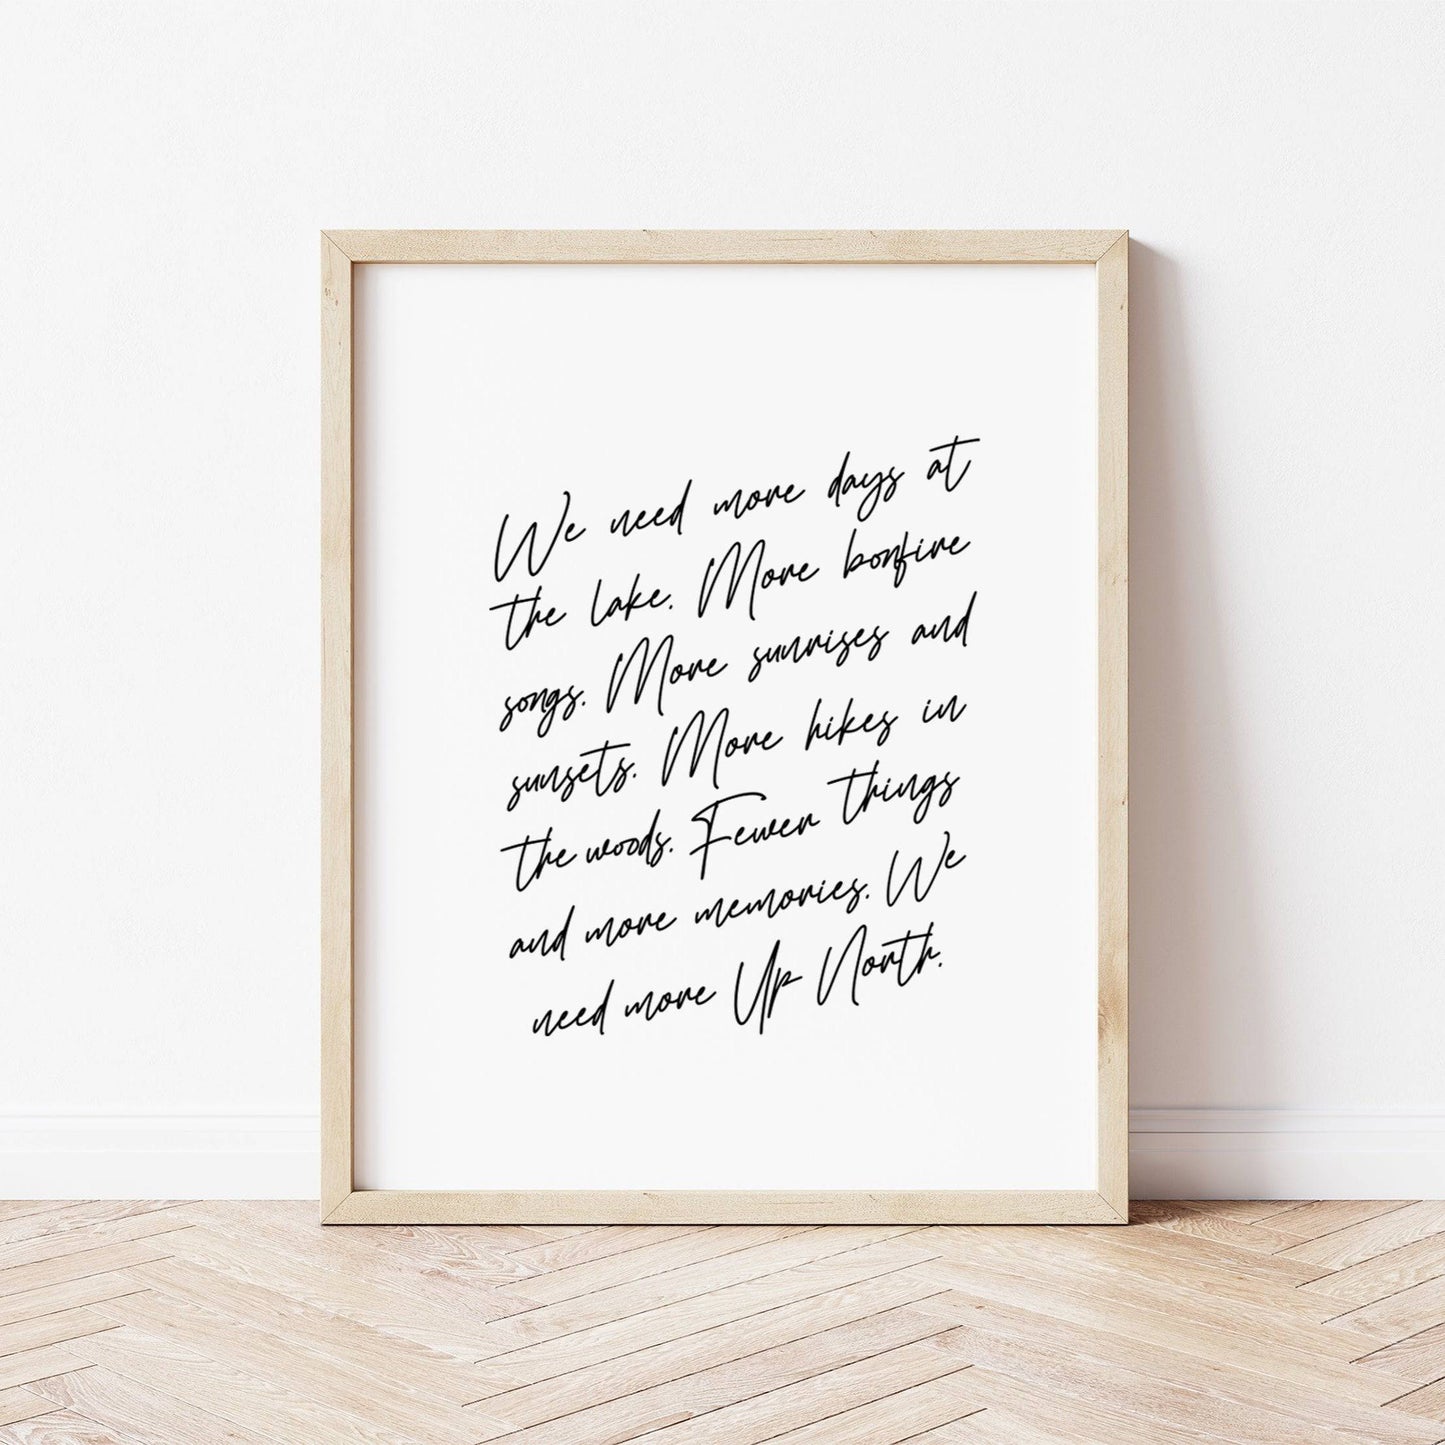 We need more days at
the lake. More bonfire
songs. More sunrises and
sunsets. More hikes in
the woods. Fewer things
and more memories. We
need more Up North.